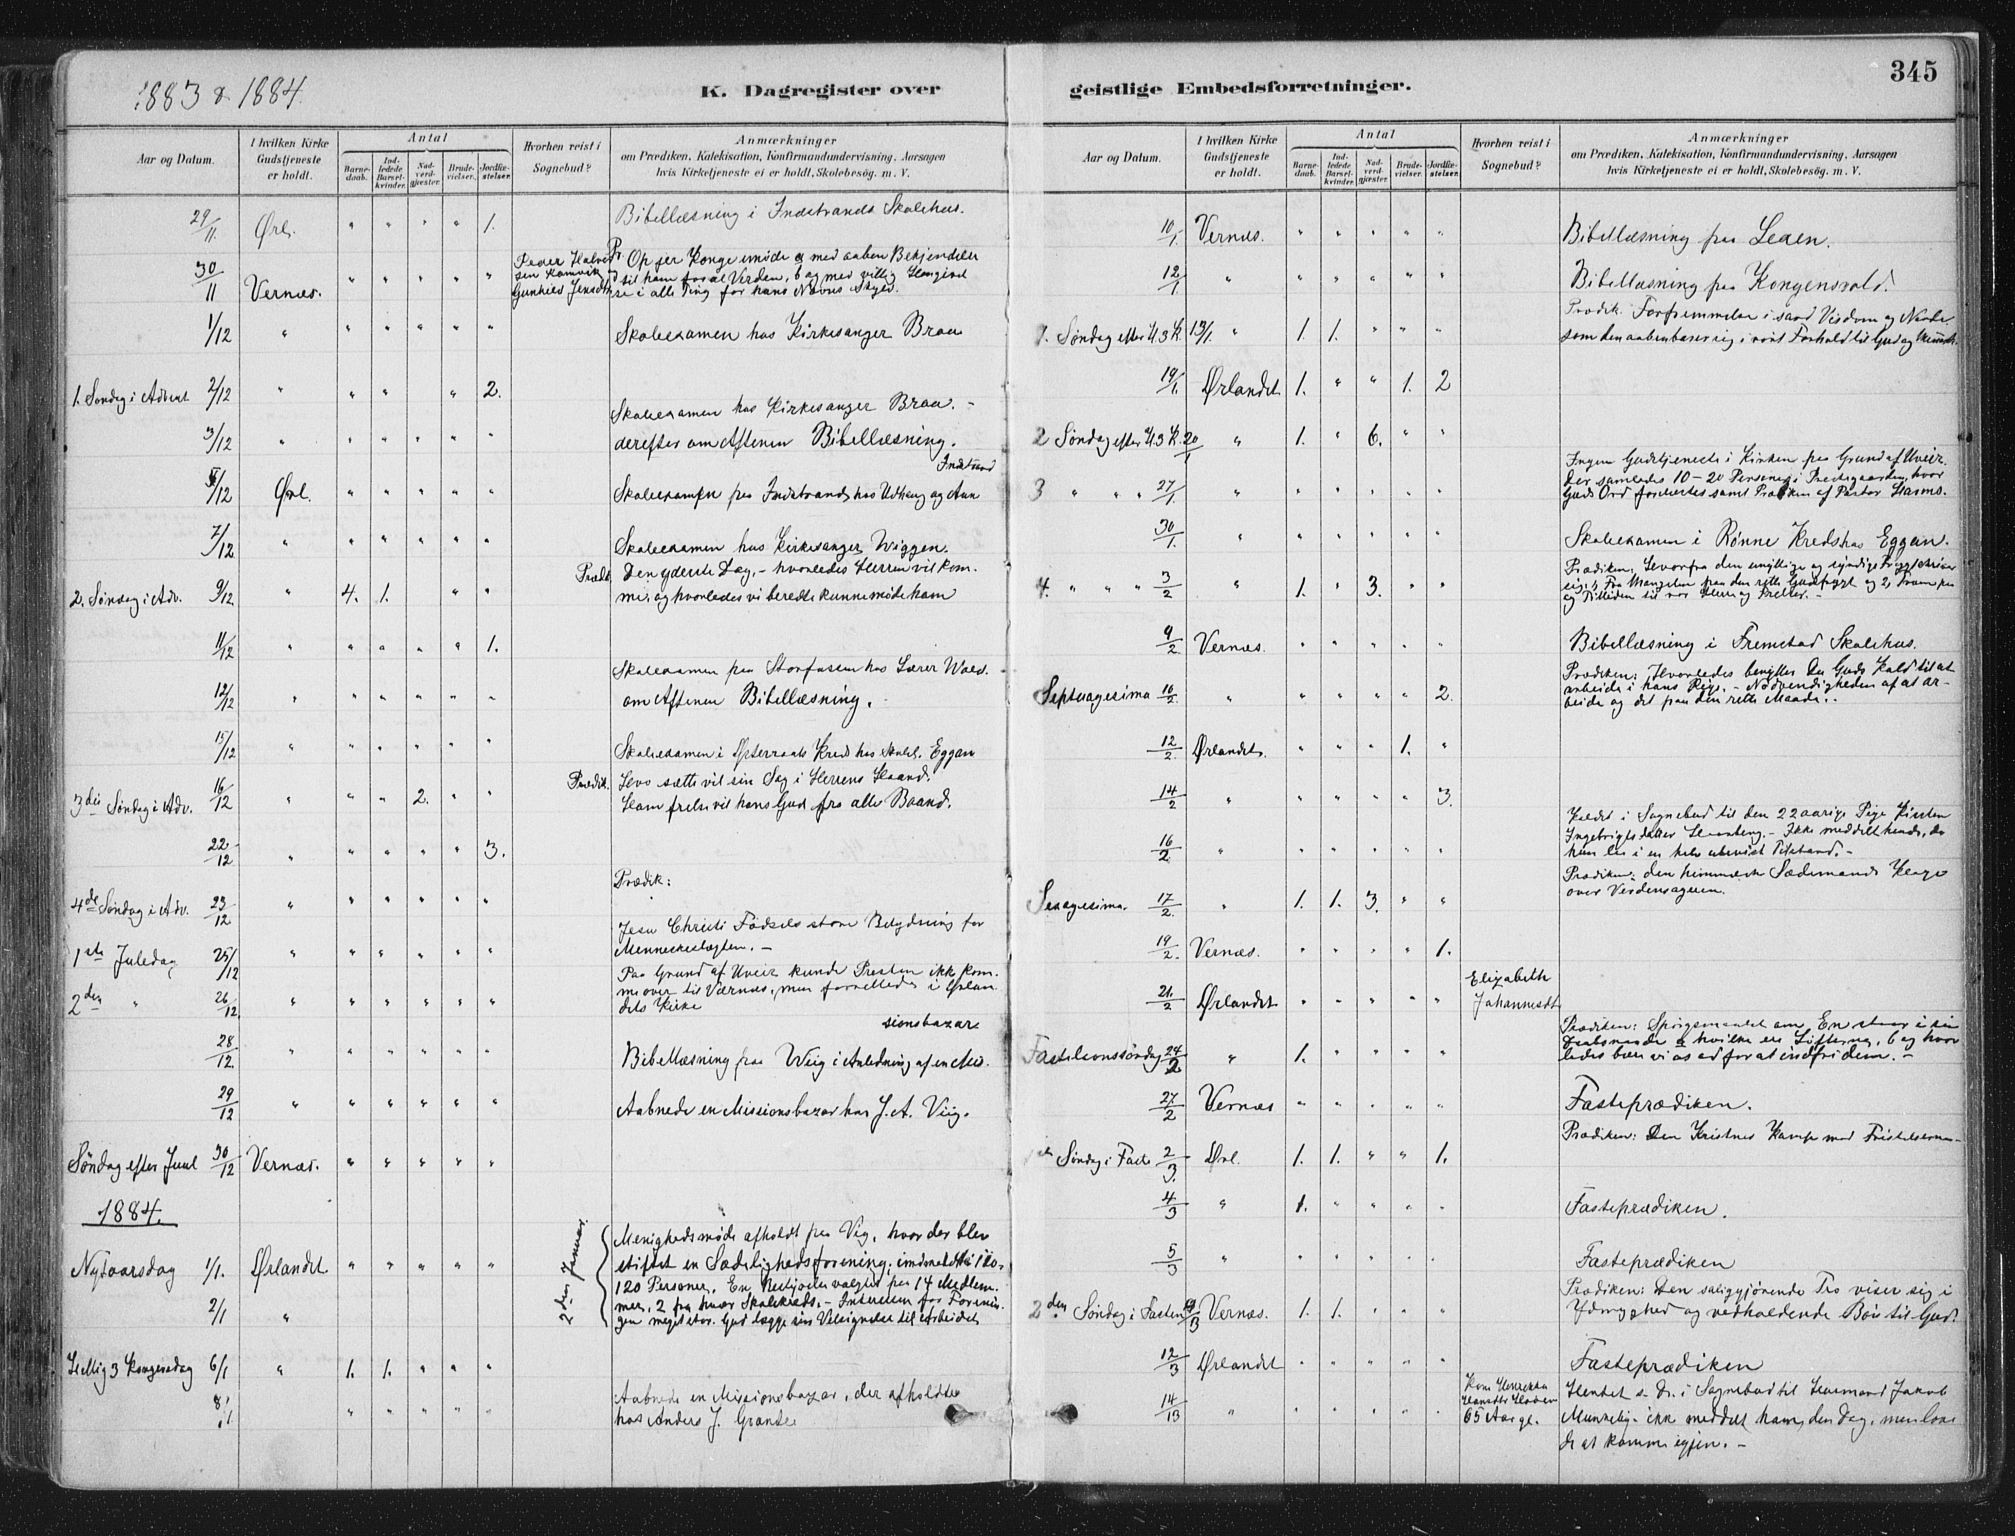 1883 & 1884.
K. Dagregister over
Aar og Datum.
I hvilken Kirke Gudstjeneste er holdt.
Antal
Barnedaab.
Indledede Barselkvinder.
Nadverdgjæster.
Brudevielser.
Jordfæstelser.
Hvorhen reist i Sognebud?
Anmærkninger
om Prædiken, Katekisation, Konfirmandundervisning, Aarsagen
hvis Kirketjeneste ei er holdt, Skolebesøg. m. V.
29/11. Ørl. " " " " 1. Bibellæsning i Indstrands Skolehus.
30/11 Vernæs. " " " " " Peder
Op før Konge møde a med aaben Bekjendelse
til ham for al Verden, b og med villig
i alle Ting for hans Navns Skyld.
1/12 " " " " " " Skoleexamen hos Kirkesanger Braa
1. Søndag i Advent 2/12 " " " " 2.
Skoleexamen hos Kirkesanger Braa. -
3/12 " " " " " " derefter om Aftenen Bibellæsning.
Indstrand
/12 Ørl. " " " " " Skoleexamen paa Indstrand hos Udhaug og Aun
7/12 " " " " " " Skoleexamen hos Kirkesanger Wiggen.
Præd. Den yderste Dag, - hvorledes Herren vil kom-
2. Søndag i Adv. 9/12 " 4. 1. " " me, og hvorledes vi beredte kunne møde ham
11/12 " " " " " 1.
Skoleexamen paa Storfosen hos Lærer Wold.
12/12 " " " " " " om Aftenen Bibellæsning.
15/12 " " " " " " Skoleexamen i Østeraats Kreds hos Skolel. Eggan
Prædik. Hvo sætte vil sin Sag i Herrens Haand,
3die Søndag i Adv. 16/12 " " " 2. " " Ham frelse vil hans Gud fra alle Baand.
22/12 " " " " " 3.
Prædik:
4de Søndag i Adv. 23/12 " " " " " "
Jesu Christi Fødsels store Betydning for
1ste Juledag 25/12 " " " " " " Menneskeslægten. -
Paa Grund af Uveir kunde Presten ikke kom-
2den " 26/12. " " " " " " me over til Værnæs, men forrettede i Ørlan-
dets Kirke
sionsbazar.
28/12. " " " " " " Bibellæsning paa Wiig i Anledning af en Mis-
29/12 " " " " " " Aabnede en Missionsbazar hos J. A. Viig.
Søndag efter Juul 30/12 Vernæs. " " " " "
1884.
2den Januar.
Menighedsmøde afholdt paa Vig, hvor der blev
Nytaarsdag 1/1. Ørlandet " " " " " stiftet en Sædelighedsforening; indmeldte 110-
120 Personer. En Bestyrelse valgtes paa 14 Medlem-
mer, 2 fra hver Skolekreds. - Interessen for Forenin-
2/1 " gen meget stor. Gud lægge sin Velsignelse til Arbeidet
Hellig 3 Kongersdag 6/1 " 1. 1. " " "
Aabnede en Missionsbazar, der afholdtes
8/1 " " " " " hos Anders J. Grande
geistlige Embedsforretninger.
345
Aar og Datum.
I hvilken Kirke Gudstjeneste er holdt.
Antal
Barnedaab.
Indledede Barselkvinder.
Nadverdgjæster.
Brudevielser.
Jordfæstelser.
Hvorhen reist i Sognebud?
Anmærkninger
om Prædiken, Katekisation, Konfirmandundervisning, Aarsagen
hvis Kirketjeneste ei er holdt, Skolebesøg. m. V.
10/1. Vernæs. " " " " " Bibellæsning paa Leden.
12/1 " " " " " " Bibellæsning paa Kongensvold.
Prædik. Forfremmelse i sand Visdom og Naade
1. Søndag efter H. 3 K. 13/1. " 1. 1. " " " som den aabenbarer sig i vort Forhold til Gud og
19/1. Ørlandet 1. " " 1. 2
2 Søndag efter H. 3 K. 20/1 " 1. " 6. " "
Ingen Gudstjeneste i Kirken paa Grund af Uveir.
Der samledes 10-20 Personer i Prestegaarden, hvor
3 " " " 27/1. " " " " " " Guds Ord forkyntes samt Prædiken af Pastor Harms.
30/1. " " " " " " Skoleexamen i Rønne Kreds hos Eggan.
Prædiken: Hvorfra den unyttige og syndige Frygt skriver
4. " " " 3/2 " 1. " 3. " " sig: 1, Fra Mangelen paa den rette Gudfrygt og 2,
og Tilliden til vor Herre og Frelser. -
9/2 Vernæs. " " " " " Bibellæsning i Fremstad Skolehus.
Prædiken: Hvorledes benytter Du Guds Kald til at
Septuagesima 10/2. " " " " " 2. arbeide i hans Rige. - Nødvendigheden af at ar-
beide og det paa den rette Maade. -
12/2. Ørlandet. " " " 1. "
14/2 " " " " " 3.
Kaldet i Sognebud til den 22 aarige Pige Kirsten
Ingebrigtsdatter - Ikke meddelt hende, da
16/2. " " " " " " hun laa i en halv ubevidst Tilstand. -
Prædiken: den himmelske Sædemands Klage
Sexagesima. 17/2. " 1. 1. 3. " " over Verdensageren.
19/2. Vernæs. " " " " 1.
21./2 Ørlandet " " " " " Elizabeth Johannesdt.
Prædiken: Spørgsmaalet om En staar i sin
Daabsnaade a hvilke ere Løfterne, b og hvor
Fastelavnssøndag 24/2 " 1. " " " " ledes bære vi os ad for at indfri dem. -
27/2 Vernæs " " " " " Fasteprædiken.
Prædiken: Den Kristnes Kamp mod Fristelserne -
Søndag i Faste 2/3. Ørl. 1. 1. " " 1.
4/3 " 1. " " " " Fasteprædiken.
5/3 " " " " " " Fasteprædiken
Prædiken: Den saliggjørende Tro viser sig i
2den Søndag i Fasten 9/3 Vernæs. 1. 1. " " " Ydmyghed og vedholdende Bøn til Gud.
12/3 Ørlandet " " " " " Fasteprædiken
Kone
65 Aar gl.
Hentet s. D. i Sognebud til Huusmand Jakob
14/3 " " " " " " ikke meddelt ham, den Dag, men love-
de at komme igjen. -